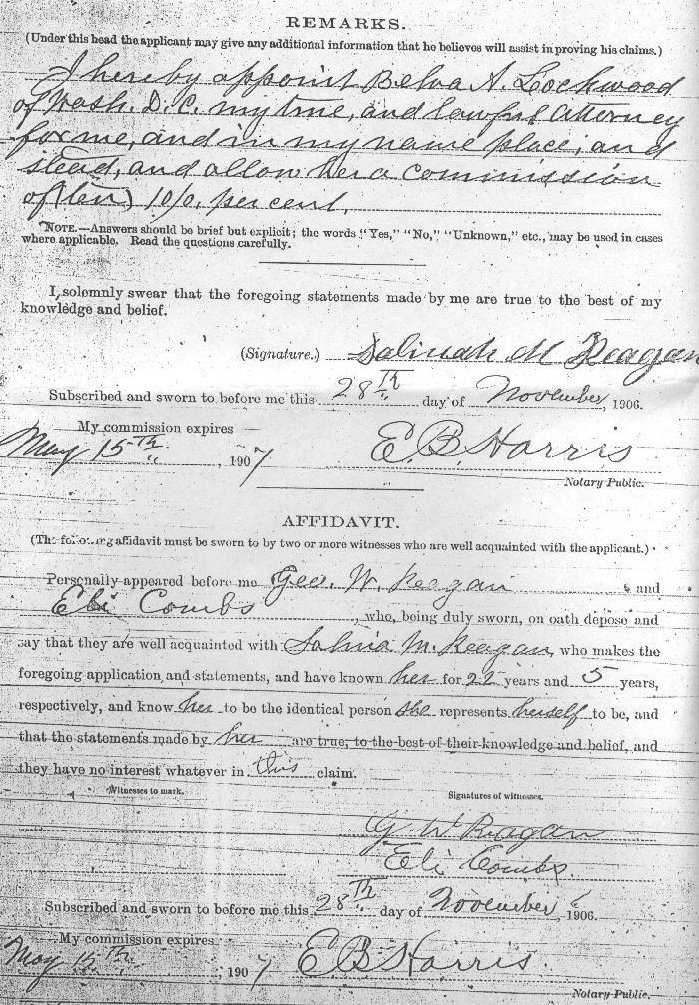 REMARKS.
(Under this head the applicant may give any additional information that he believes will assist in proving his claims.)
I hereby appoint Belva A. Lockwood
of Wash. D.C. my true, and lawful Attorney
for me, and in my name place, and
stead, and allow her a commission
of (ten) 10/0. per cent,
NOTE.—Answers should be brief but explicit; the words "Yes," "No," "Unknown," etc., may be used in cases
where applicable. Read the questions carefully.
I solemnly swear that the foregoing statements made by me are true to the best of my
knowledge and belief.
(Signature.) Salinah M Reagan
Subscribed and sworn to before me this 28th day of November, 1906.
My commission expires
May 15th, 1907 E. B. Harris
Notary Public.
AFFIDAVIT.
(The following affidavit must be sworn to by two or more witnesses who are well acquainted with the applicant.)
Personally appeared before me Geo. W. Reagan and
Eli Combs, who, being duly sworn, on oath depose and
say that they are well acquainted with Salina M. Reagan, who makes the
foregoing application and statements, and have known her for 22 years and 5 years,
respectively, and know her to be the identical person she represents herself to be, and
that the statements made by her are true, to the best of their knowledge and belief, and
they have no interest whatever in this claim.
Witnesses to mark. Signatures of witnesses.
G W Reagan
Eli Combs.
Subscribed and sworn to before me this 28th day of November, 1906.
My commission expires
May 15th, 1907 E B Harris.
Notary Public.